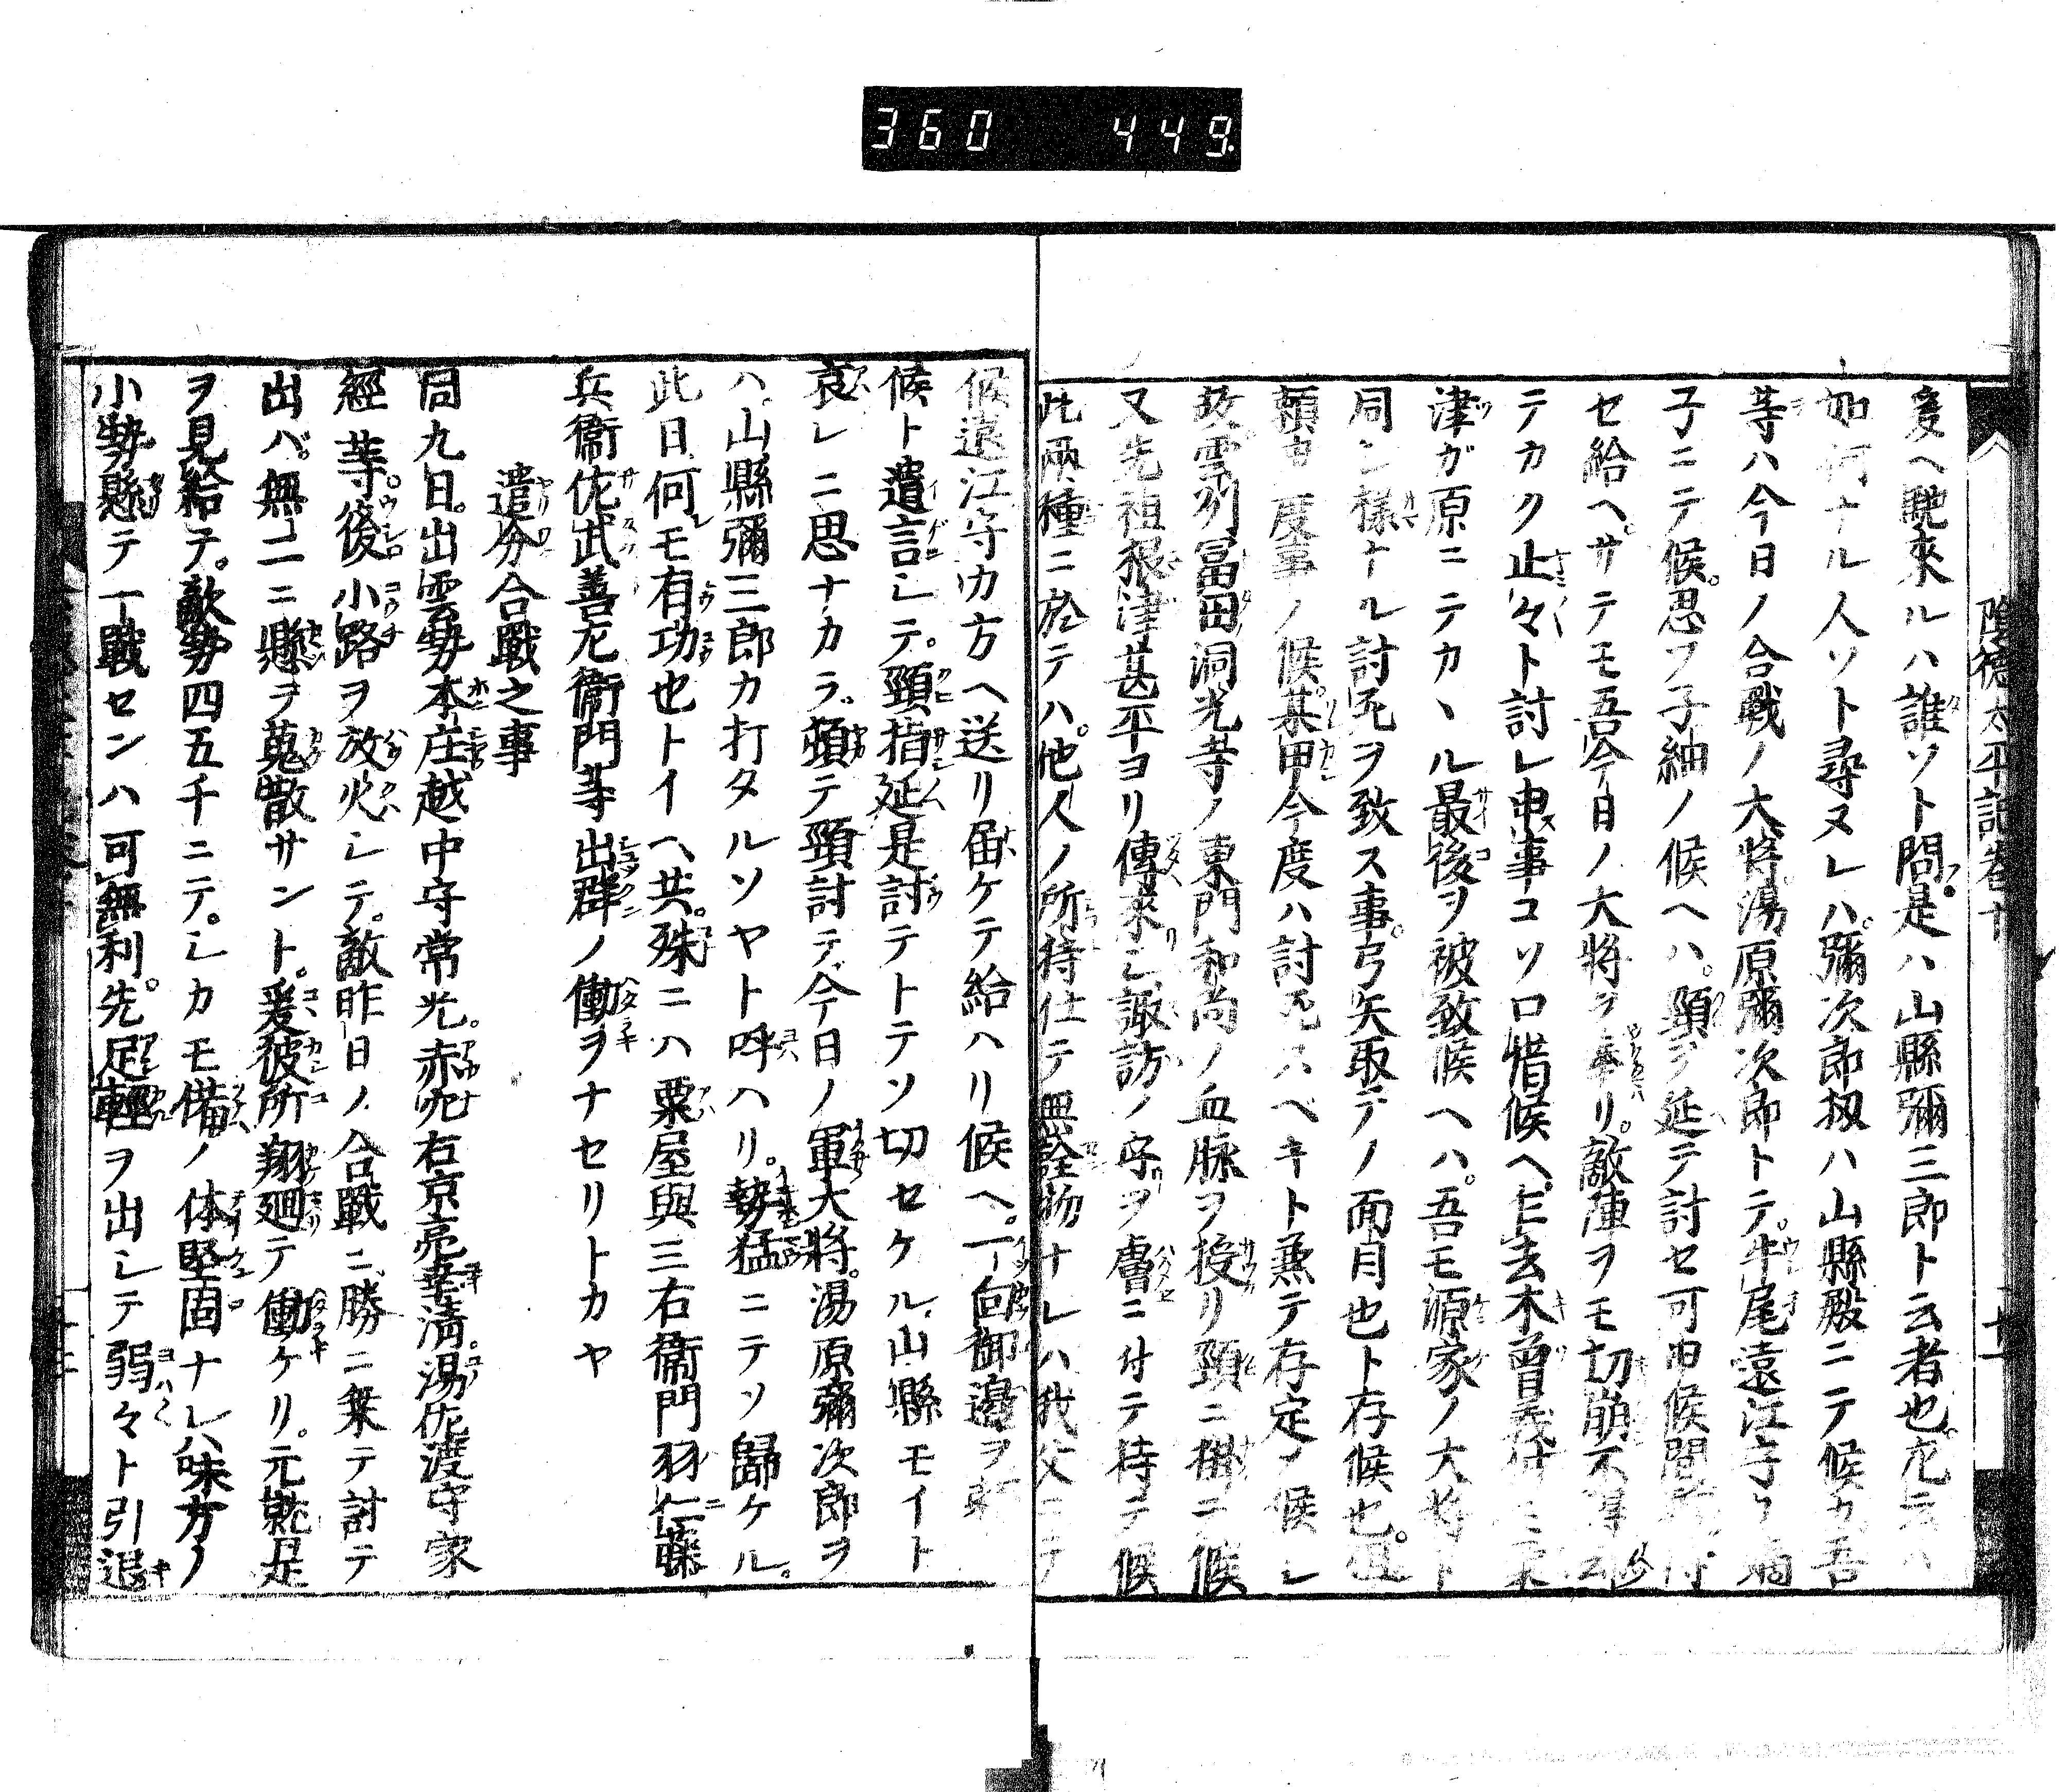 360 449.
陰徳太平記巻十
爰ヘ馳來ルハ誰ソト問。是ハ山縣彌三郎ト云者也。尤云ハ
如何ナル人ソト尋ヌレハ。彌次郎扨ハ山縣殿ニテ候カ吾
等ハ今日ノ合戰ノ大將湯原彌次郎トテ。牛尾遠江守カ嫡
子ニテ候。思フ子細ノ候ヘハ。頸ヲ延テ討セ可申候間
セ給ヘ。サテモ吾今日ノ大將ヲ奉リ。敵陣ヲモ切崩不得
テカク止々ト討レ申事コソ口惜候ヘ。去木曾義仲
津ガ原ニテカヽル最後ヲ被致候ヘハ。吾モ源家ノ大將ト
同シ樣ナル討死ヲ致ス事。弓矢取テノ面目也ト存候也。
頼母度事ノ候。某甲今度ハ討死スベキト兼テ存定メ候シ
故雲州冨田洞光寺ノ東門和尚ノ血脉ヲ授リ頸ニ掛ニ候
又先祖根津甚平ヨリ傳來シ諏訪ノ守ヲ膚ニ付テ持テ候
此兩種ニ於テハ。他人ノ所持仕テ無詮物ナレハ我父ニテ
候遠江守カ方ヘ送リ届ケテ給ハリ候ヘ。一向御邊ヲ頼
候ト遺言シテ。頸指延是討テトテソ切セケル山縣モイト
哀レニ思ナカラ。頓テ頸討テ今日ノ軍大將。湯原彌次郎ヲ
ハ山縣彌三郎カ打タルソヤト呼ハリ。勢猛ニテソ歸ケル。
此日何モ有功也トイヘ共。殊ニハ粟屋與三右衞門羽仁藤
兵衞佐武善左衞門等出群ノ働ヲナセリトカヤ
遣分合戰之事
同九日。出雲勢本庄越中守常光。赤穴右京亮幸清。湯佐渡守家
經等。後小路ヲ放火シテ。敵昨日ノ合戰ニ勝ニ乗テ討テ
出バ。無二ニ懸ヲ蒐散サント。爰彼所翔廻テ働ケリ。元就是
ヲ見給テ。敵勢四五千ニテ。シカモ備ノ体堅固ナレハ味方ノ
小勢懸テ一戰センハ可無利。先足輕ヲ出シテ弱々ト引退
十一
十二